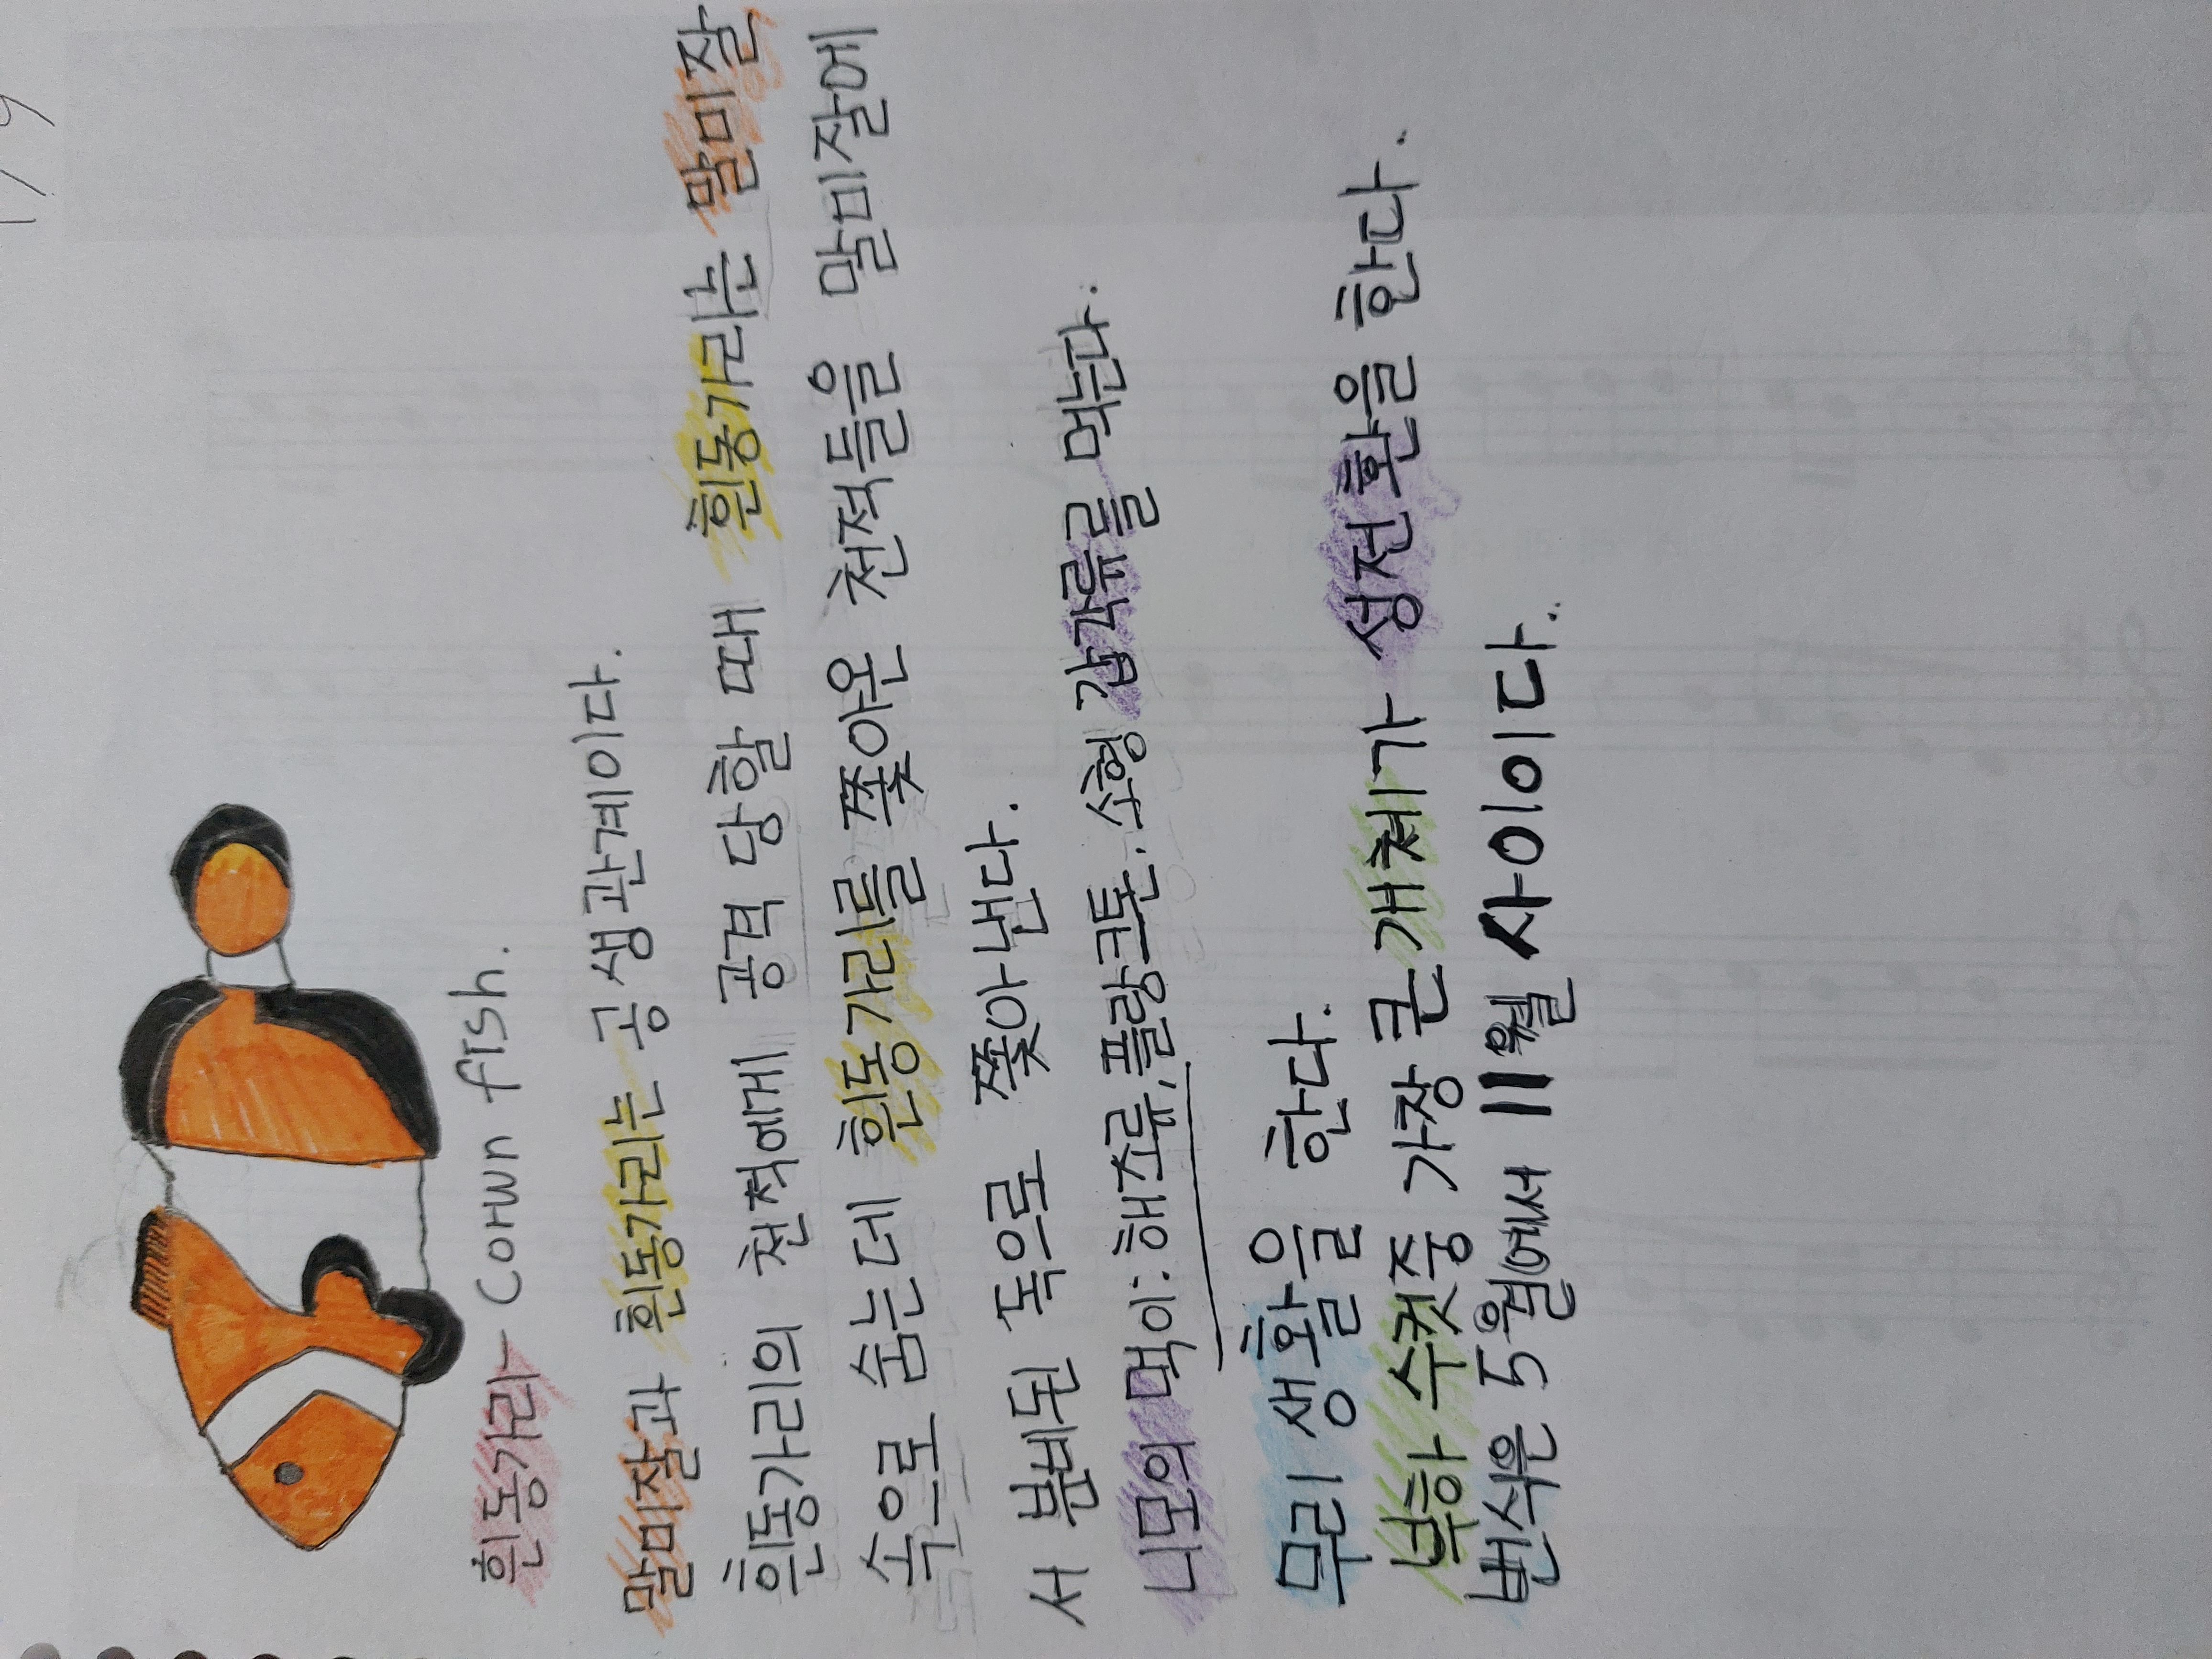 흰동가리- Conwn fish.
말미잘과 흰동가리는 공생관계이다.
흰동가리의 천적에게 공격 당할 때 흰동가라는 말미잘
속으로 숨는데 흰동가리를 쫓아온 천적들을 말미잘에
서 분비된 독으로 쫓아낸다.
니모의 먹이: 해조류, 플랑크톤. 소형 갑각류를 먹는다.
무리 생활을 한다.
부하 수컷중 가장 큰 개체가 성전환을 한다.
번식은 5월에서 11월 사이이다.